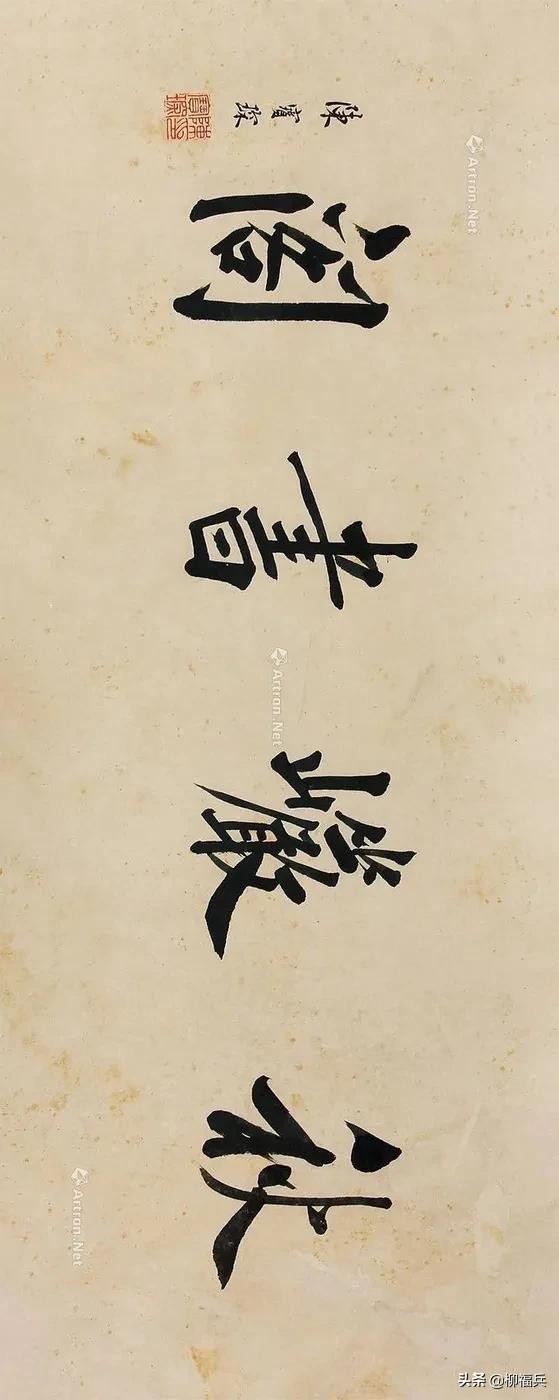 秋巖書閣
陳寶琛
Artron.Net
Artron.Net
Artron.Net
头条 @柳福兵